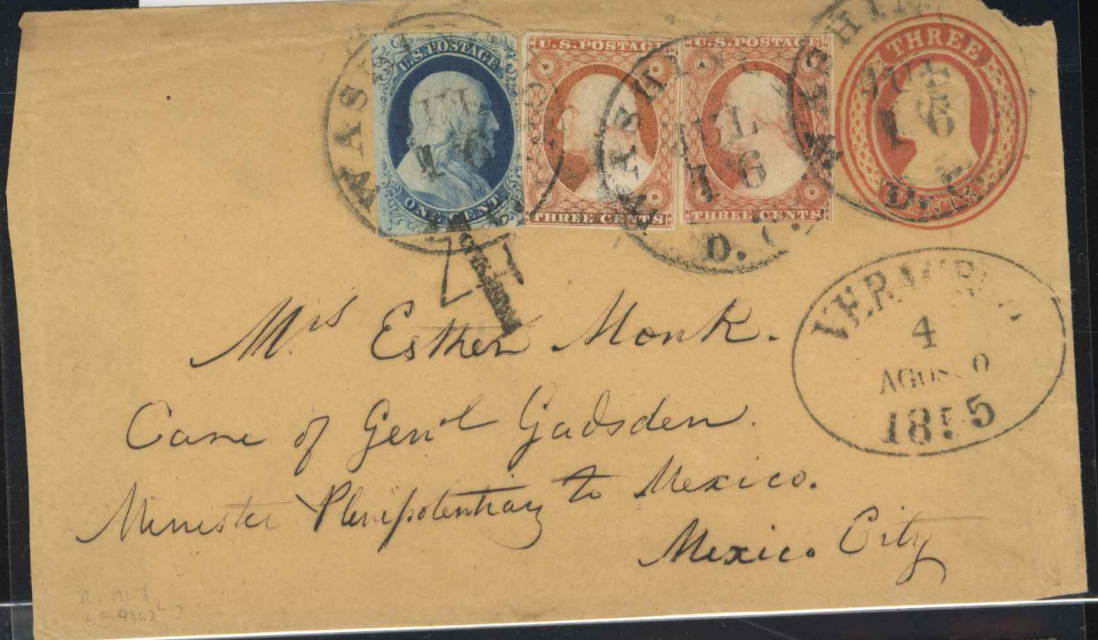 U.S. POSTAGE
ONE CENT
U.S. POSTAGE
THREE CENTS
U.S. POSTAGE
THREE CENTS
THREE
JUL
16
JUL
16
D.C.
JUL
16
D.C.
4
VERACRUZ
4
AGOSTO
1855
Mrs Esther Monk.
Care of Genl Gadsden.
Minister Plenipotentiary to Mexico.
Mexico City